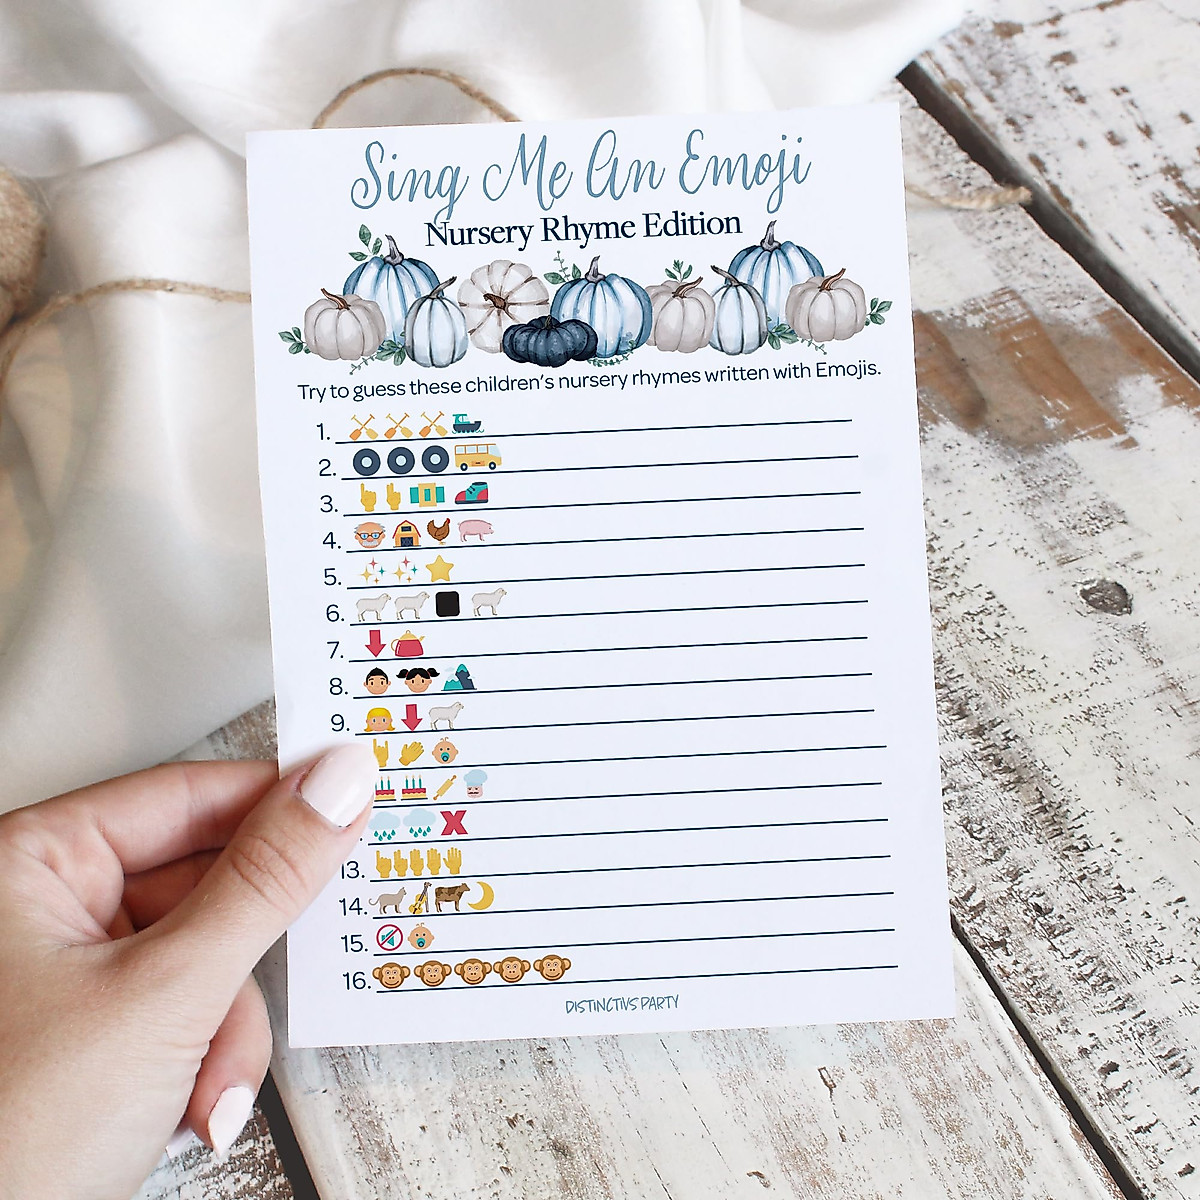 Sing Me An Emoji
Nursery Rhyme Edition
Try to guess these children's nursery rhymes written with Emojis.
1.
2.
3.
4.
5.
6.
7.
8.
9.
13.
14.
15.
16.
DISTINCTIVS PARTY